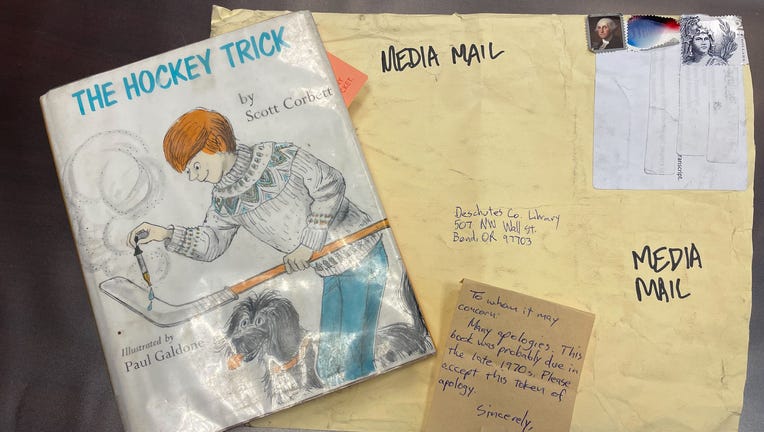 THE HOCKEY TRICK
by
Scott Corbett
Illustrated by
Paul Galdone
MEDIA MAIL
Deschutes Co. Library
507 NW Wall St.
Bend, OR 97703
MEDIA
MAIL
To whom it may
concern:
Many apologies. This
book was probably due in
the late 1970s. Please
accept this token of
apology.
Sincerely,